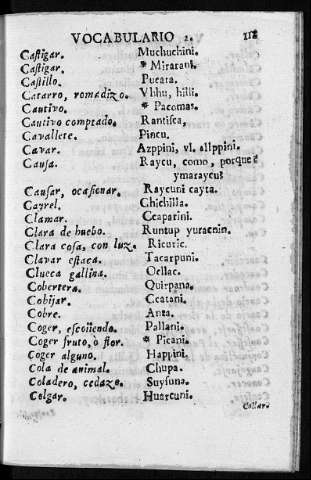 VOCABULARIO 2. 118
Castigar. Muchuchini.
Castigar. * Mirarani.
Castillo. Pucara.
Catarro, romadizo. Vhhu, hilli.
Cautivo. * Pacomas.
Cautivo comprado. Rantisca,
Cavallete. Pincu.
Cavar. Azppini, vl. allppini.
Causa. Raycu, como, porque?
ymaraycu?
Causar, ocasionar. Raycuni cayta.
Cayrel. Chichilla.
Clamar. Ccaparini.
Clara de huebo. Runtup yuracnin.
Clara cosa, con luz. Ricuric.
Clavar estaca. Tacarpuni.
Clueca gallina. Ocllac.
Cobertera. Quirpana.
Cobijar. Ccatani.
Cobre. Anta.
Coger, escoiiendo. Pallani.
Coger fruto, ò flor. * Picani.
Coger alguno. Happini.
Cola de animal. Chupa.
Coladero, cedazo. Suysuna.
Colgar. Huarcuni.
Collar.